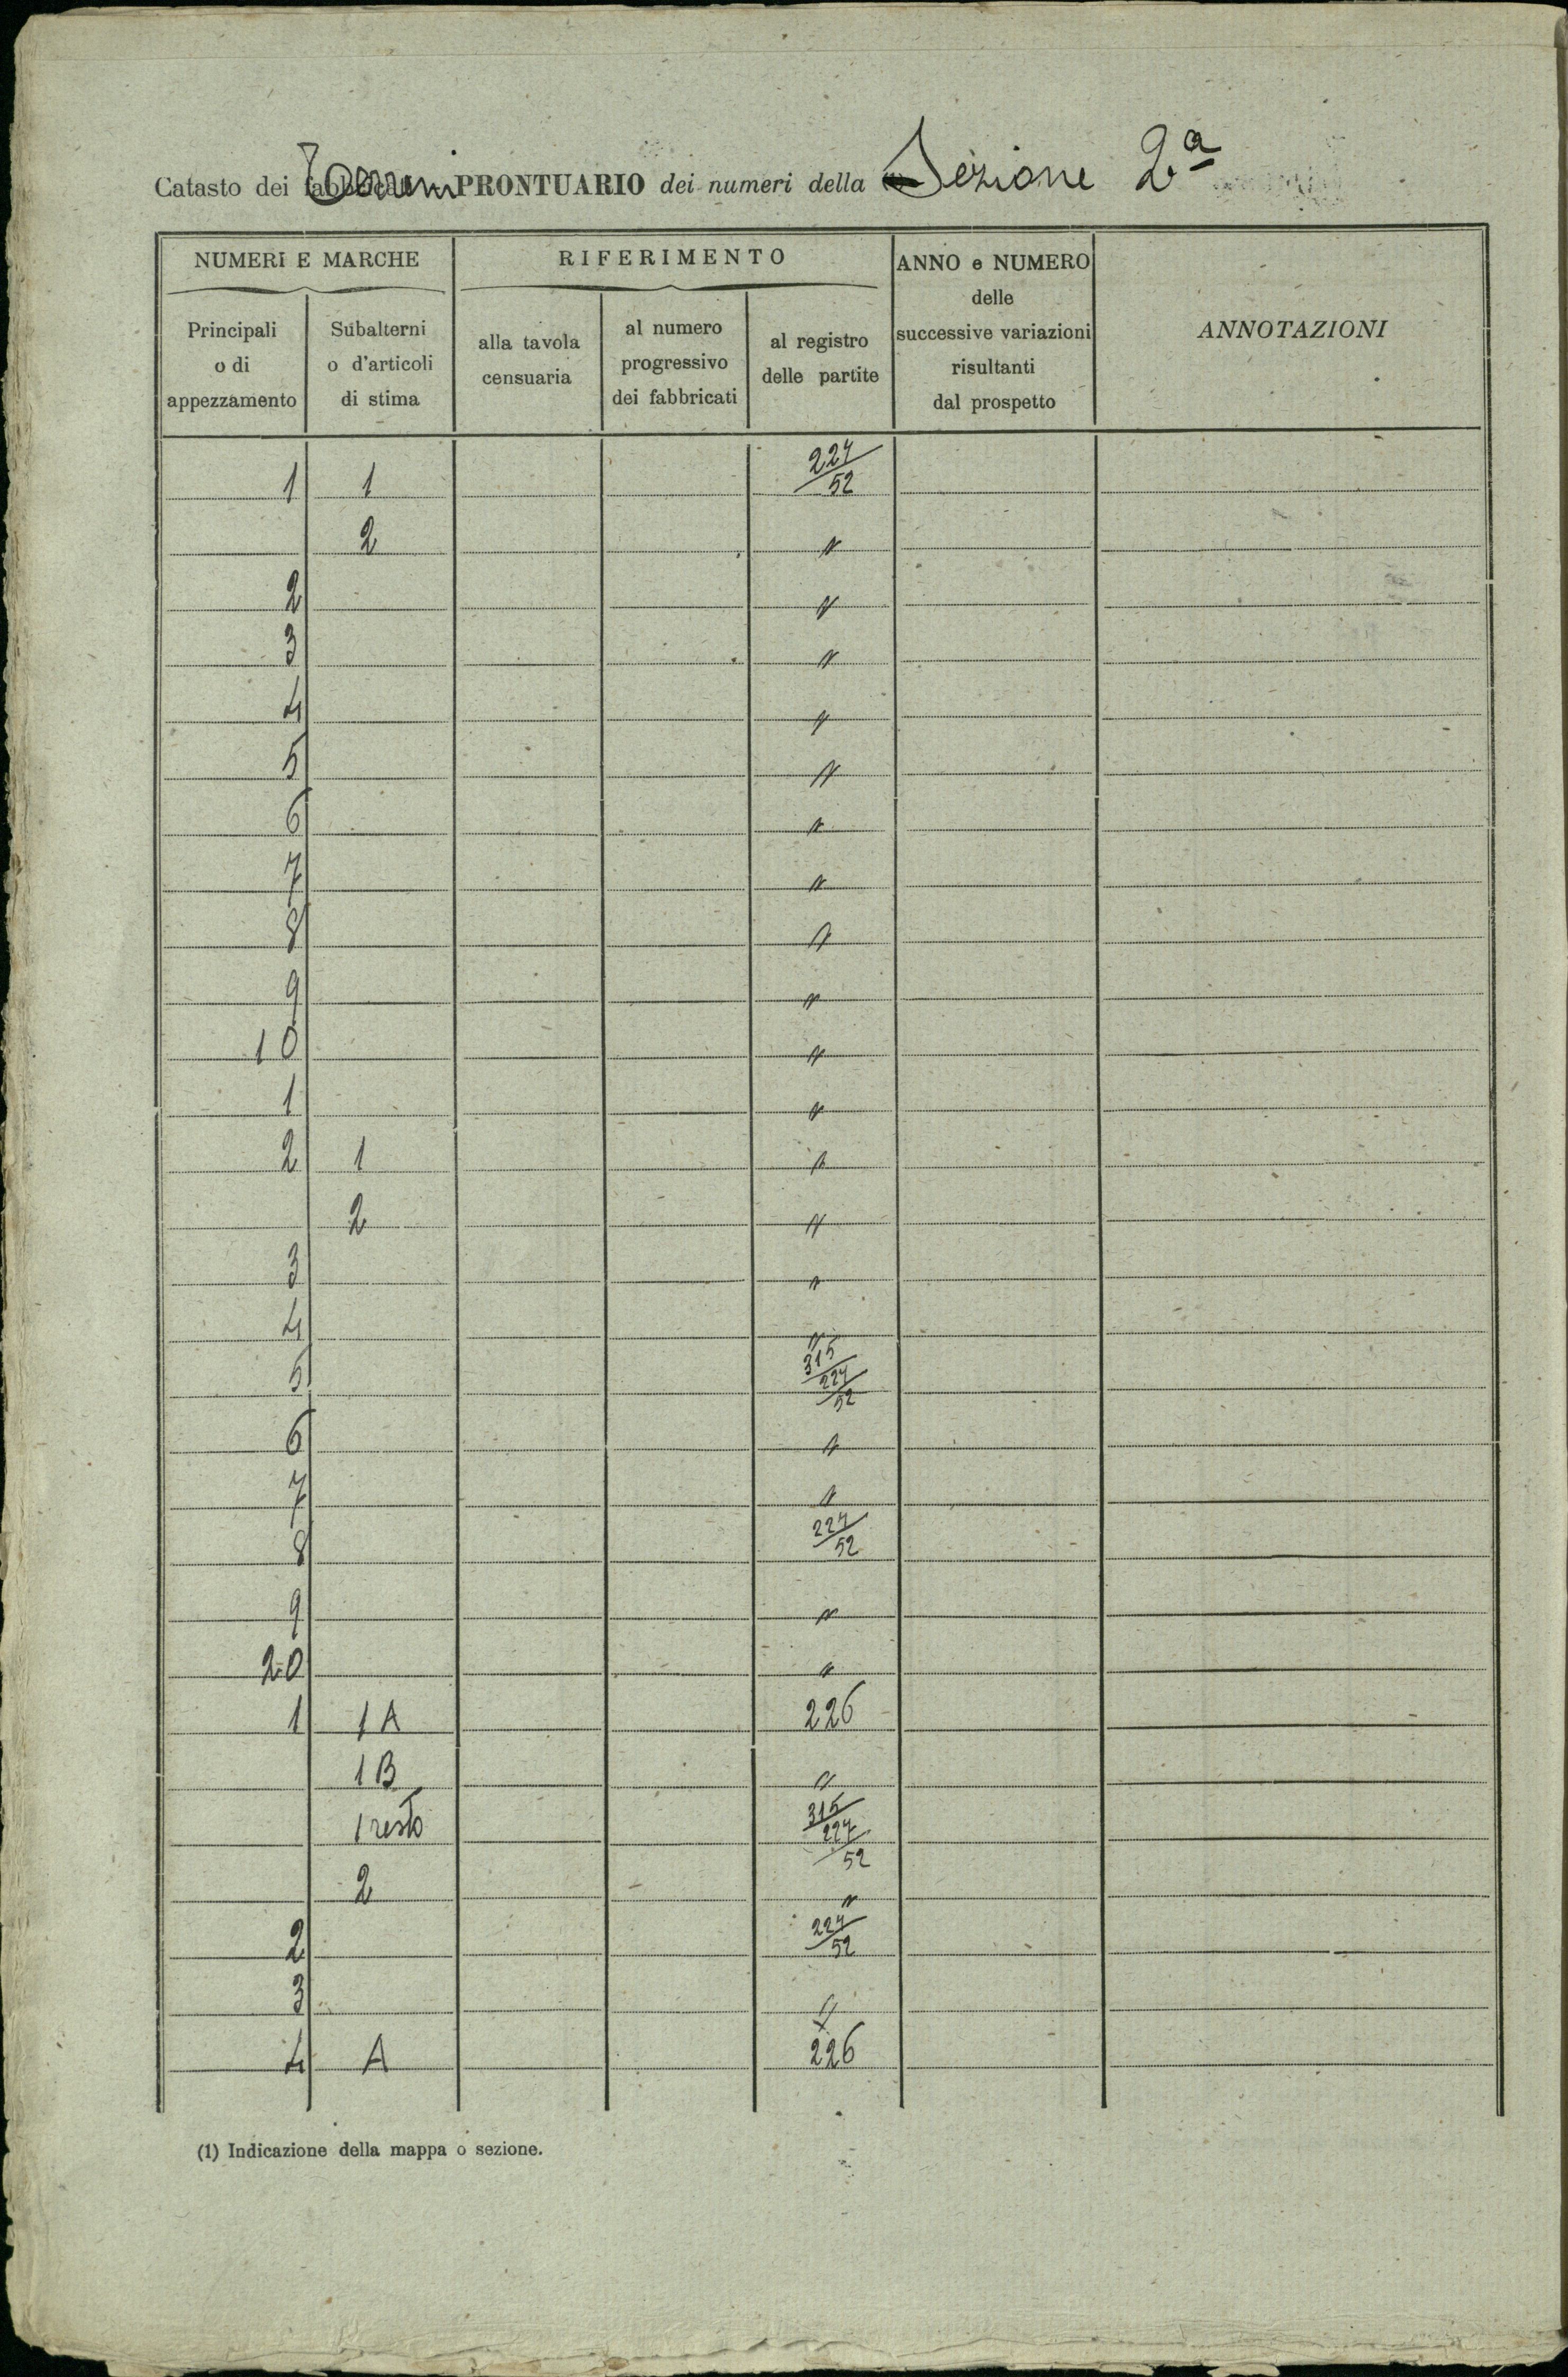 Catasto dei Terreni PRONTUARIO dei numeri della Sezione 2ª
NUMERI E MARCHE
RIFERIMENTO
ANNO e NUMERO
delle
successive variazioni
risultanti
dal prospetto
ANNOTAZIONI
Principali
o di
appezzamento
Subalterni
o d'articoli
di stima
alla tavola
censuaria
al numero
progressivo
dei fabbricati
al registro
delle partite
1 1 227/52
2 〃
2 〃
3 〃
4 〃
5 〃
6 〃
7 〃
8 〃
9 〃
10 〃
1 〃
2 1 〃
2 〃
3 〃
4 〃
5 315/227/52
6 〃
7 〃
8 227/52
9 〃
20 〃
1 1A 226
1B 〃
1 resto 315/227/52
2 〃
2 227/52
3 〃
4 A 226
(1) Indicazione della mappa o sezione.